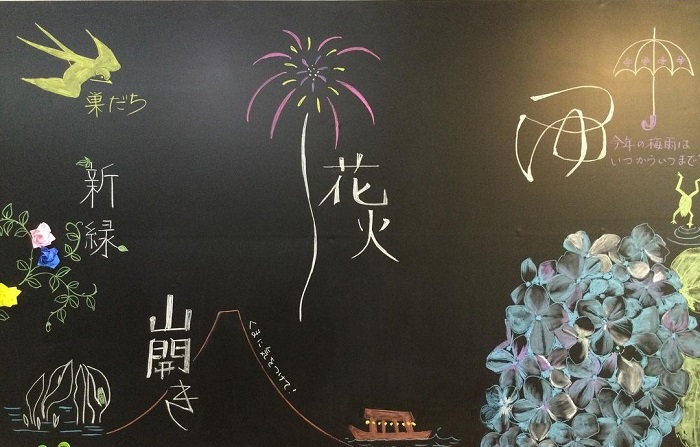 巣だち
新緑
花火
雨
今年の梅雨は
いつからいつまで
山開き
くまに気をつけて!